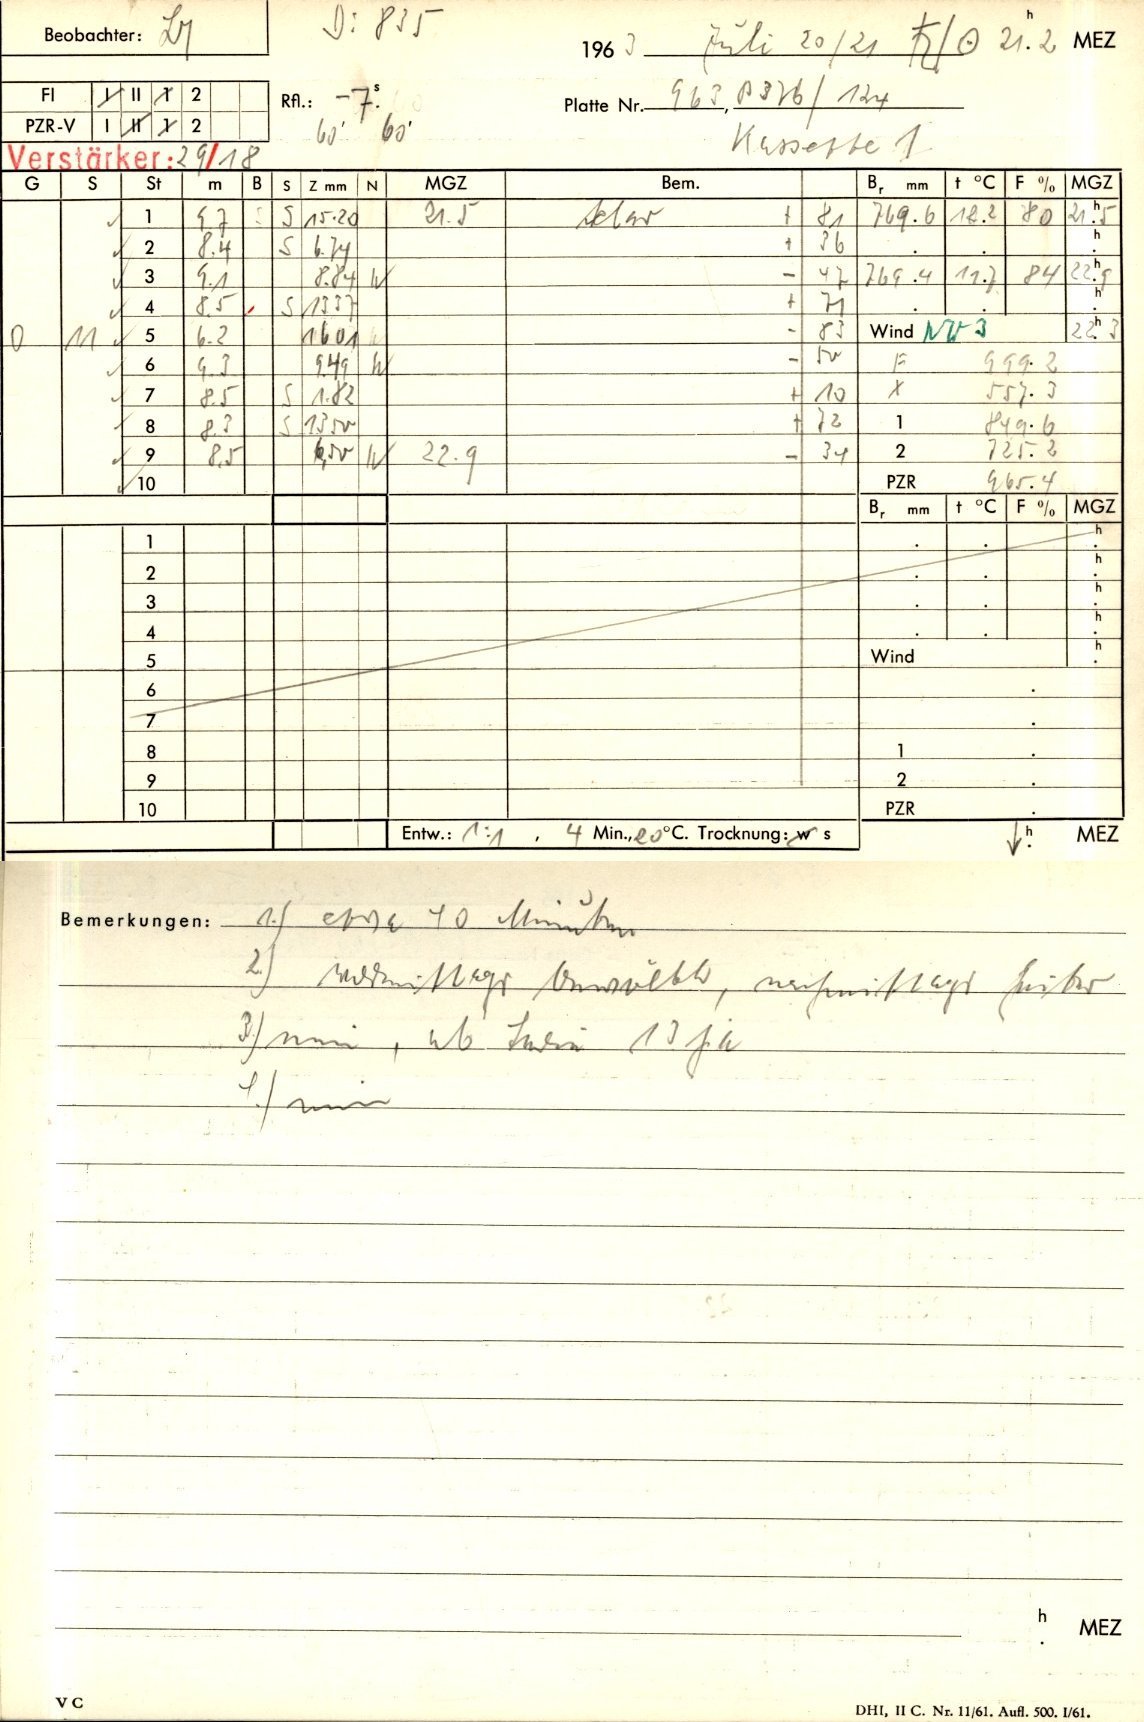 Beobachter:
D: 835
1963 Juli 20/21 ♄/☉ 21.2 h MEZ
FI I II 1 2
Rfl.: -7.s
Platte Nr. 963, 0376/124
PZR-V I II 1 2
60' 60'
Kassette 1
Verstärker: 29/18
G S St m B S Z mm N MGZ Bem. Br mm t °C F % MGZ
1 9.7 S S 15.20 21.5 klar + 81 769.6 12.2 80 21.h5
2 8.4 S 6.74 + 36 . . h.
3 9.1 8.84 N - 47 769.4 11.7 84 22.h9
4 8.5 S 1337 + 71 . . h.
0 11 5 6.2 1601 N - 83 Wind NW 3 22.h3
6 9.3 949 N - 50 F 999.2
7 8.5 S 1.82 + 10 X 557.3
8 8.3 S 1350 + 72 1 849.6
9 8.5 6,50 N 22.9 - 34 2 725.2
10 PZR 965.4
Br mm t °C F % MGZ
1 . . h.
2 . . h.
3 . . h.
4 . . h.
5 Wind h.
6 .
7 .
8 1 .
9 2 .
10 PZR .
Entw.: 1:1 , 4 Min., 20°C. Trocknung: w s h. MEZ
Bemerkungen: 1.) etwa 40 Minuten
2.) vormittags bewölkt, nachmittags heiter
3.) nein, ab 13 ja
4.) nein
h. MEZ
V C
DHI, II C. Nr. 11/61. Aufl. 500. I/61.